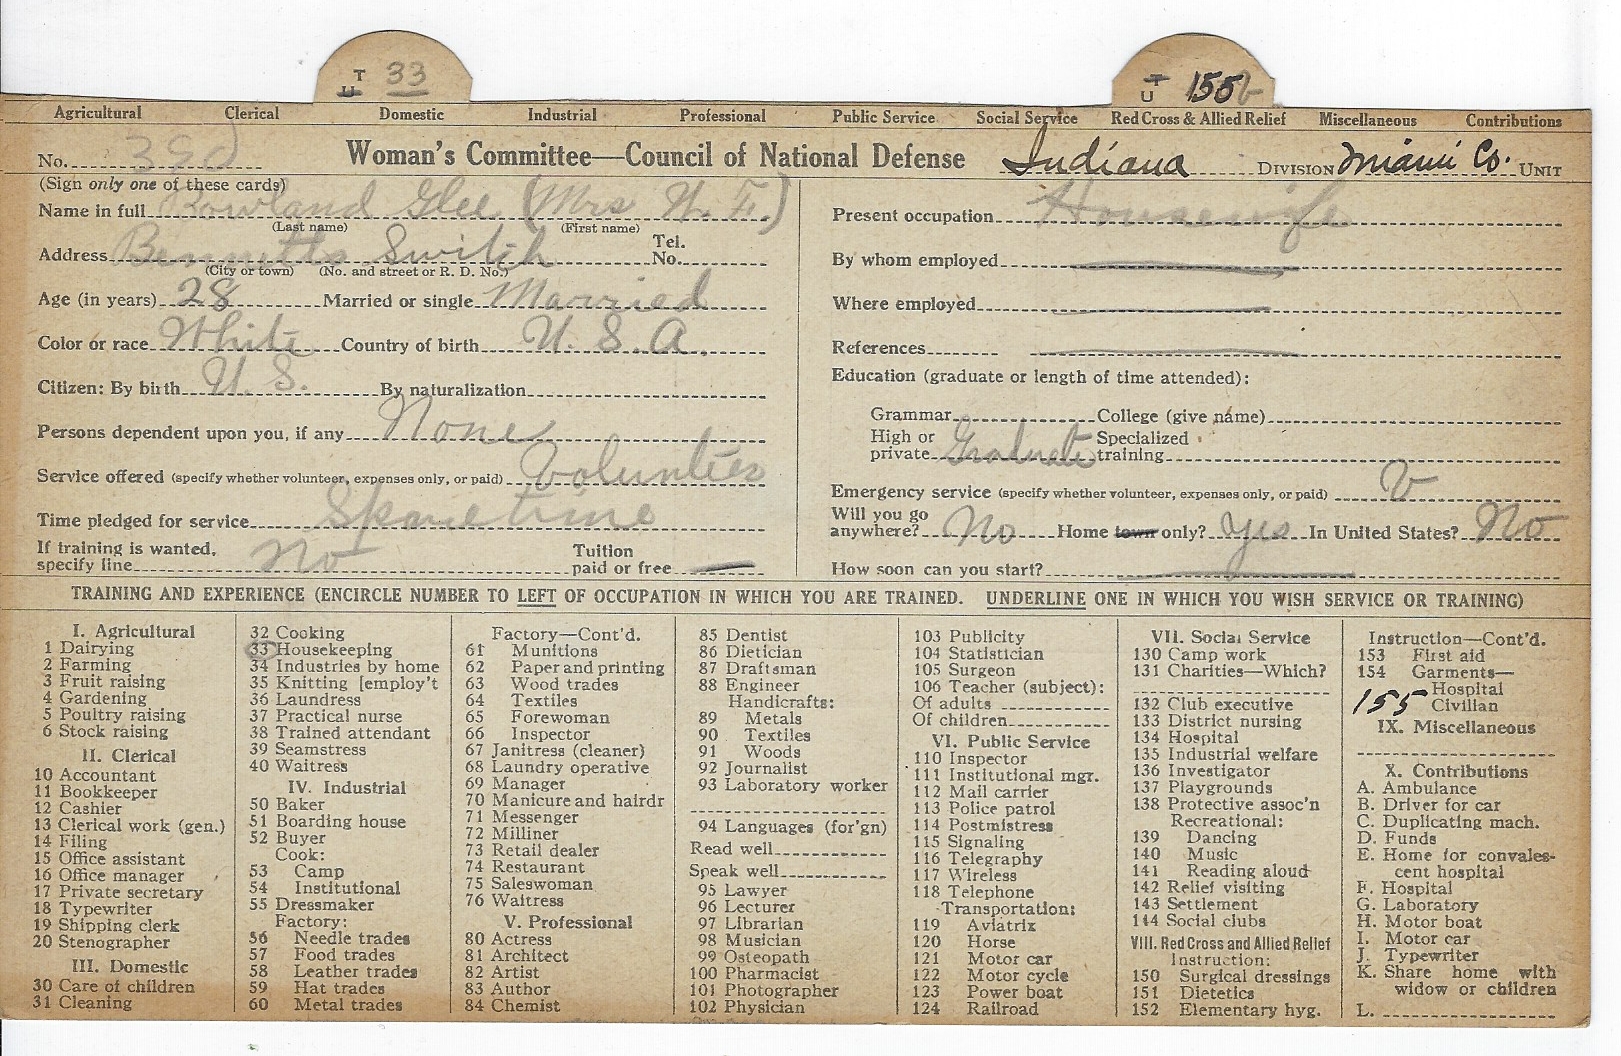 T
U 33
T
U 155 b
Agricultural Clerical Domestic Industrial Professional Public Service Social Service Red Cross & Allied Relief Miscellaneous Contributions
No. Woman's Committee—Council of National Defense Indiana Division Miami Co. Unit
(Sign only one of these cards)
Name in full Rowland Glee (Mrs W. F.)
(Last name) (First name)
Address Bennetts Switch Tel. No.
(City or town) (No. and street or R. D. No.)
Age (in years) 28 Married or single Married
Color or race White Country of birth U. S. A.
Citizen: By birth U. S. By naturalization
Persons dependent upon you, if any None
Service offered (specify whether volunteer, expenses only, or paid) Volunteer
Time pledged for service Spare time
If training is wanted, specify line No Tuition paid or free
Present occupation Housewife
By whom employed
Where employed
References
Education (graduate or length of time attended):
Grammar College (give name)
High or private Graduate Specialized training
Emergency service (specify whether volunteer, expenses only, or paid) V
Will you go anywhere? No Home town only? Yes In United States? No
How soon can you start?
TRAINING AND EXPERIENCE (ENCIRCLE NUMBER TO LEFT OF OCCUPATION IN WHICH YOU ARE TRAINED. UNDERLINE ONE IN WHICH YOU WISH SERVICE OR TRAINING)
I. Agricultural
1 Dairying
2 Farming
3 Fruit raising
4 Gardening
5 Poultry raising
6 Stock raising
II. Clerical
10 Accountant
11 Bookkeeper
12 Cashier
13 Clerical work (gen.)
14 Filing
15 Office assistant
16 Office manager
17 Private secretary
18 Typewriter
19 Shipping clerk
20 Stenographer
III. Domestic
30 Care of children
31 Cleaning
32 Cooking
33 Housekeeping
34 Industries by home
35 Knitting [employ't
36 Laundress
37 Practical nurse
38 Trained attendant
39 Seamstress
40 Waitress
IV. Industrial
50 Baker
51 Boarding house
52 Buyer
Cook:
53 Camp
54 Institutional
55 Dressmaker
Factory:
56 Needle trades
57 Food trades
58 Leather trades
59 Hat trades
60 Metal trades
Factory—Cont'd.
61 Munitions
62 Paper and printing
63 Wood trades
64 Textiles
65 Forewoman
66 Inspector
67 Janitress (cleaner)
68 Laundry operative
69 Manager
70 Manicure and hairdr
71 Messenger
72 Milliner
73 Retail dealer
74 Restaurant
75 Saleswoman
76 Waitress
V. Professional
80 Actress
81 Architect
82 Artist
83 Author
84 Chemist
85 Dentist
86 Dietician
87 Draftsman
88 Engineer
Handicrafts:
89 Metals
90 Textiles
91 Woods
92 Journalist
93 Laboratory worker
94 Languages (for'gn)
Read well
Speak well
95 Lawyer
96 Lecturer
97 Librarian
98 Musician
99 Osteopath
100 Pharmacist
101 Photographer
102 Physician
103 Publicity
104 Statistician
105 Surgeon
106 Teacher (subject):
Of adults
Of children
VI. Public Service
110 Inspector
111 Institutional mgr.
112 Mail carrier
113 Police patrol
114 Postmistress
115 Signaling
116 Telegraphy
117 Wireless
118 Telephone
Transportation:
119 Aviatrix
120 Horse
121 Motor car
122 Motor cycle
123 Power boat
124 Railroad
VII. Social Service
130 Camp work
131 Charities—Which?
132 Club executive
133 District nursing
134 Hospital
135 Industrial welfare
136 Investigator
137 Playgrounds
138 Protective assoc'n
Recreational:
139 Dancing
140 Music
141 Reading aloud
142 Relief visiting
143 Settlement
144 Social clubs
VIII. Red Cross and Allied Relief
Instruction:
150 Surgical dressings
151 Dietetics
152 Elementary hyg.
Instruction—Cont'd.
153 First aid
154 Garments—
Hospital
155 Civilian
IX. Miscellaneous
X. Contributions
A. Ambulance
B. Driver for car
C. Duplicating mach.
D. Funds
E. Home for convales-
cent hospital
F. Hospital
G. Laboratory
H. Motor boat
I. Motor car
J. Typewriter
K. Share home with
widow or children
L.